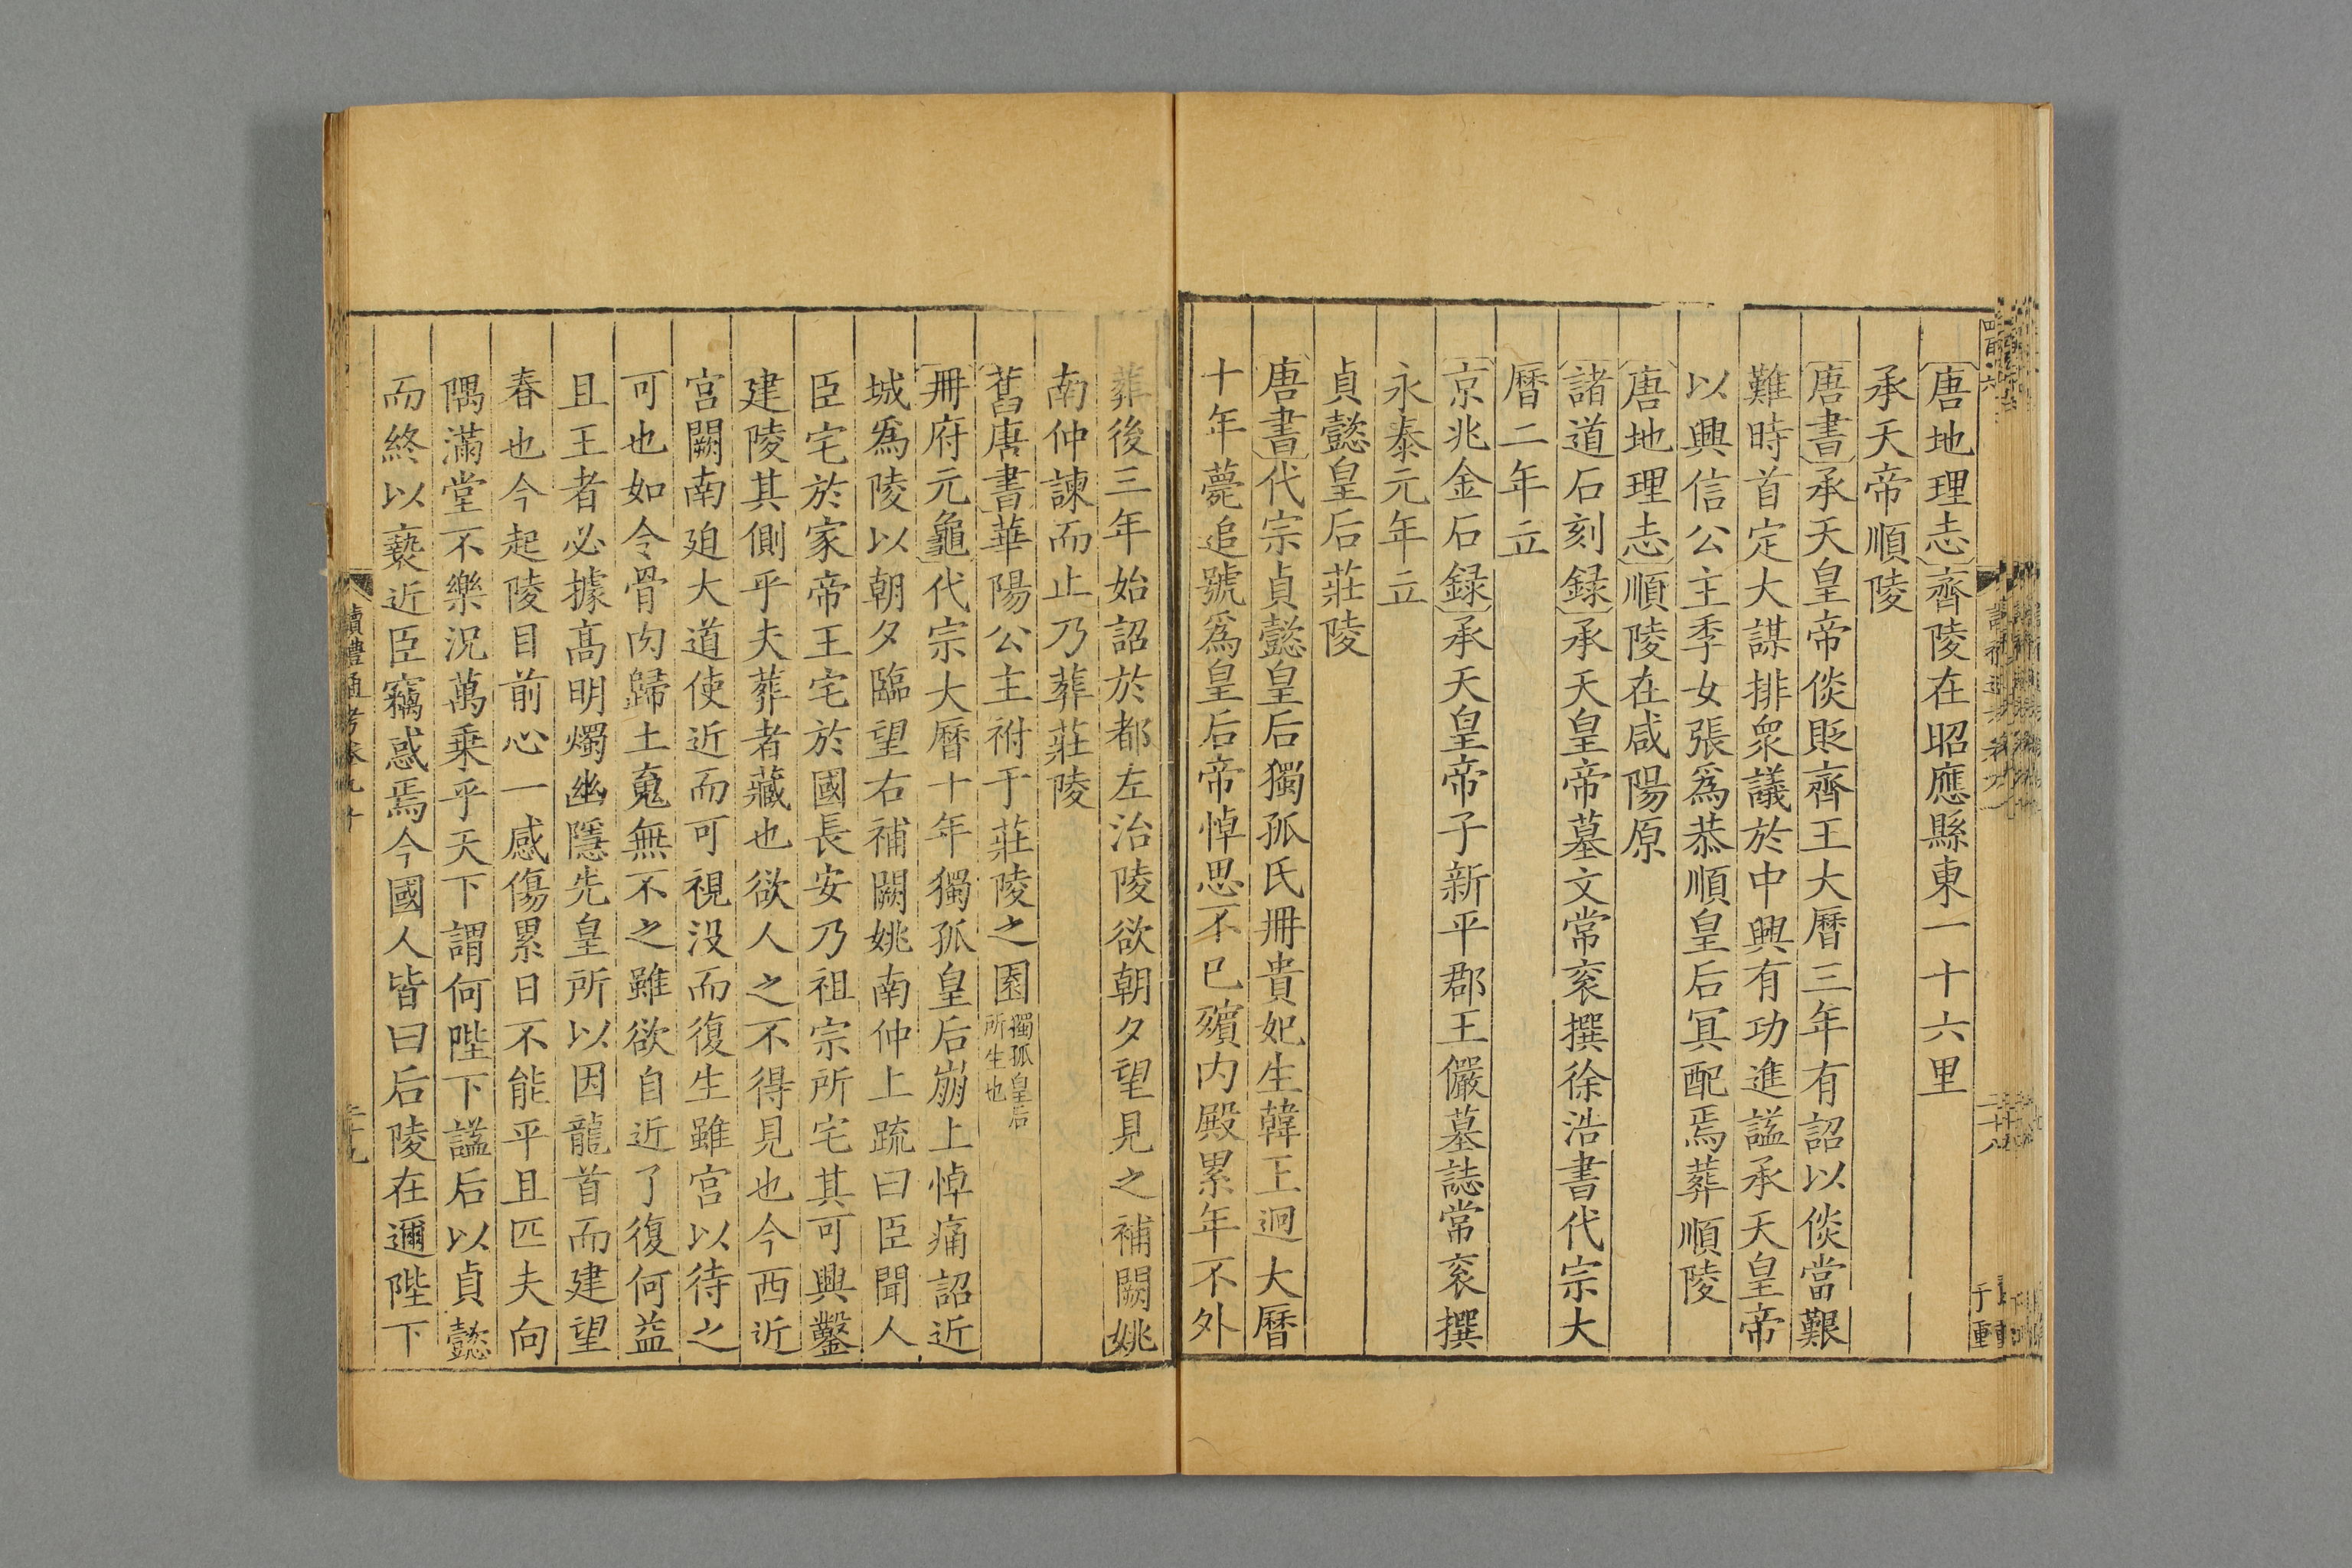 唐地理志齊陵在昭應縣東一十六里
承天帝順陵
唐書承天皇帝倓貶齊王大曆三年有詔以倓當艱
難時首定大謀排衆議於中興有功進謚承天皇帝
以興信公主季女張爲恭順皇后冥配焉葬順陵
唐地理志順陵在咸陽原
諸道石刻録承天皇帝墓文常衮撰徐浩書代宗大
曆二年立
京兆金石録承天皇帝子新平郡王儼墓誌常衮撰
永泰元年立
貞懿皇后莊陵
唐書代宗貞懿皇后獨孤氏冊貴妃生韓王迥大曆
十年薨追號爲皇后帝悼思不已殯内殿累年不外
葬後三年始詔於都左治陵欲朝夕望見之補闕姚
南仲諫而止乃葬莊陵
舊唐書華陽公主祔于莊陵之園獨孤皇后
所生也
冊府元龜代宗大曆十年獨孤皇后崩上悼痛詔近
城爲陵以朝夕臨望右補闕姚南仲上疏曰臣聞人
臣宅於家帝王宅於國長安乃祖宗所宅其可興鑿
建陵其側乎夫葬者藏也欲人之不得見也今西近
宫闕南廹大道使近而可視没而復生雖宫以待之
可也如令骨肉歸土䰟無不之雖欲自近了復何益
且王者必據髙明燭幽隱先皇所以因龍首而建望
春也今起陵目前心一感傷累日不能平且匹夫向
隅滿堂不樂況萬乗乎天下謂何陛下謚后以貞懿
而終以䙝近臣竊惑焉今國人皆曰后陵在邇陛下
讀禮通考卷九十
二十八
于重